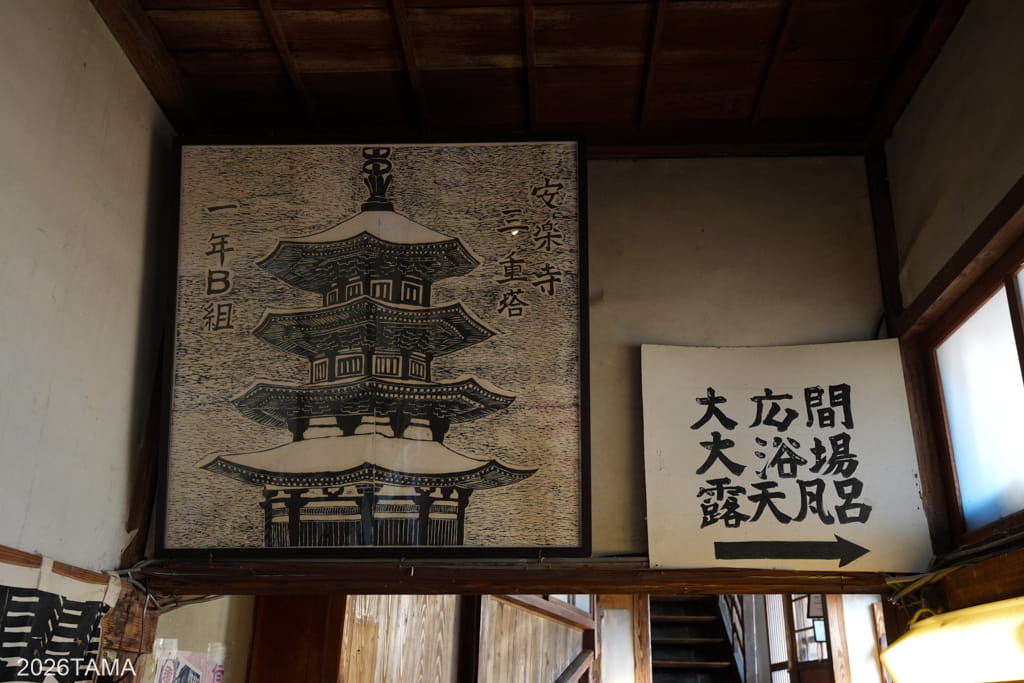 安楽寺
三重塔
一年B組
大広間
大浴場
露天風呂
2026TAMA